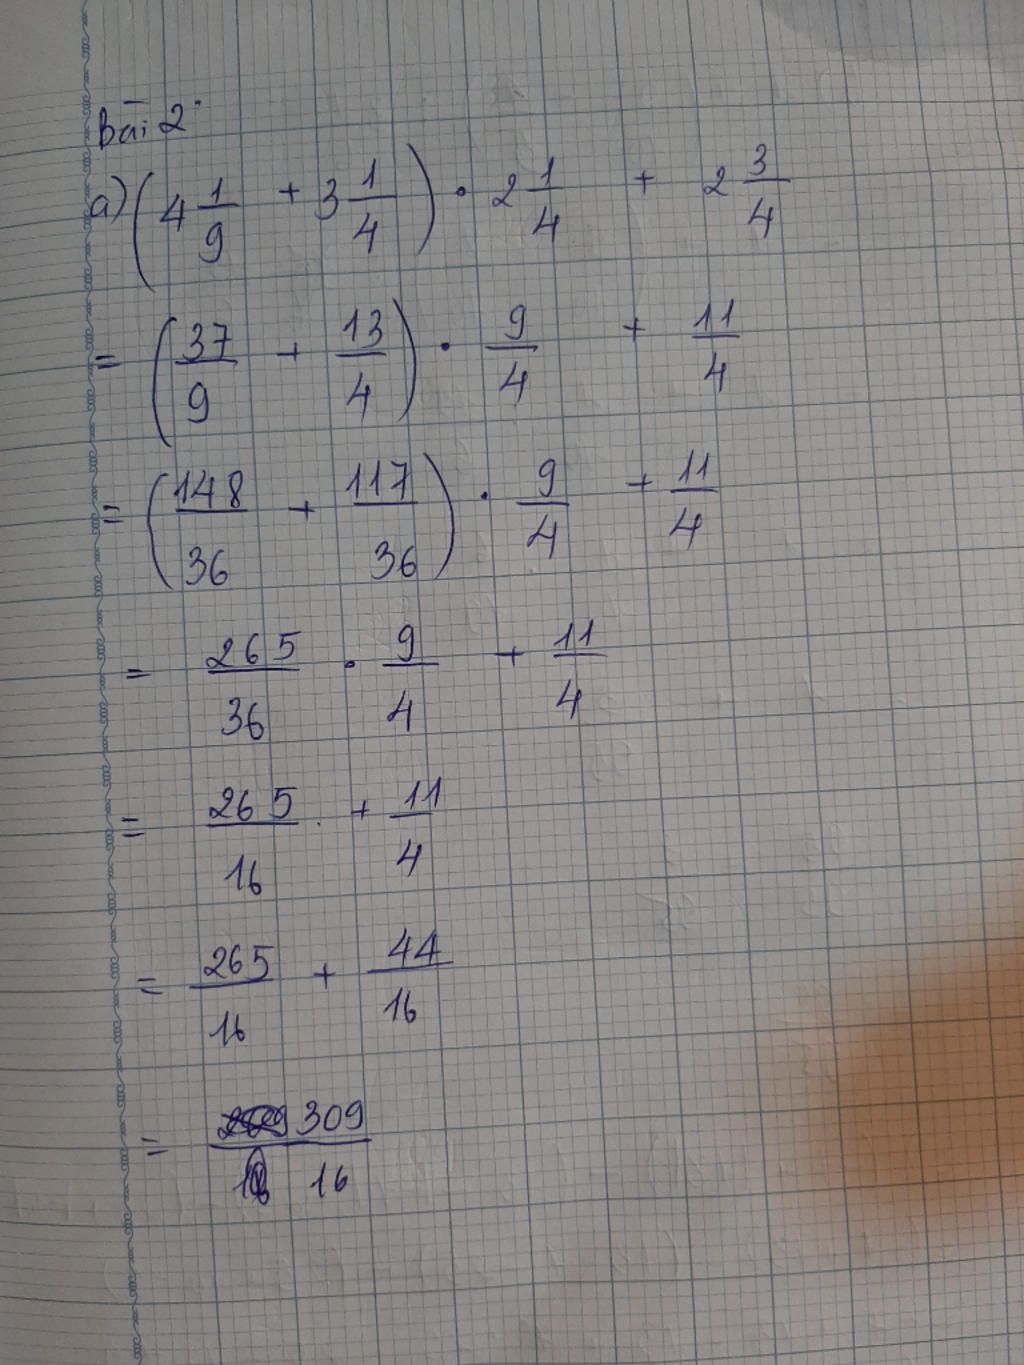 Bài 2:
a) (4 1/9 + 3 1/4) · 2 1/4 + 2 3/4
= (37/9 + 13/4) · 9/4 + 11/4
= (148/36 + 117/36) · 9/4 + 11/4
= 265/36 · 9/4 + 11/4
= 265/16 + 11/4
= 265/16 + 44/16
= 309/16